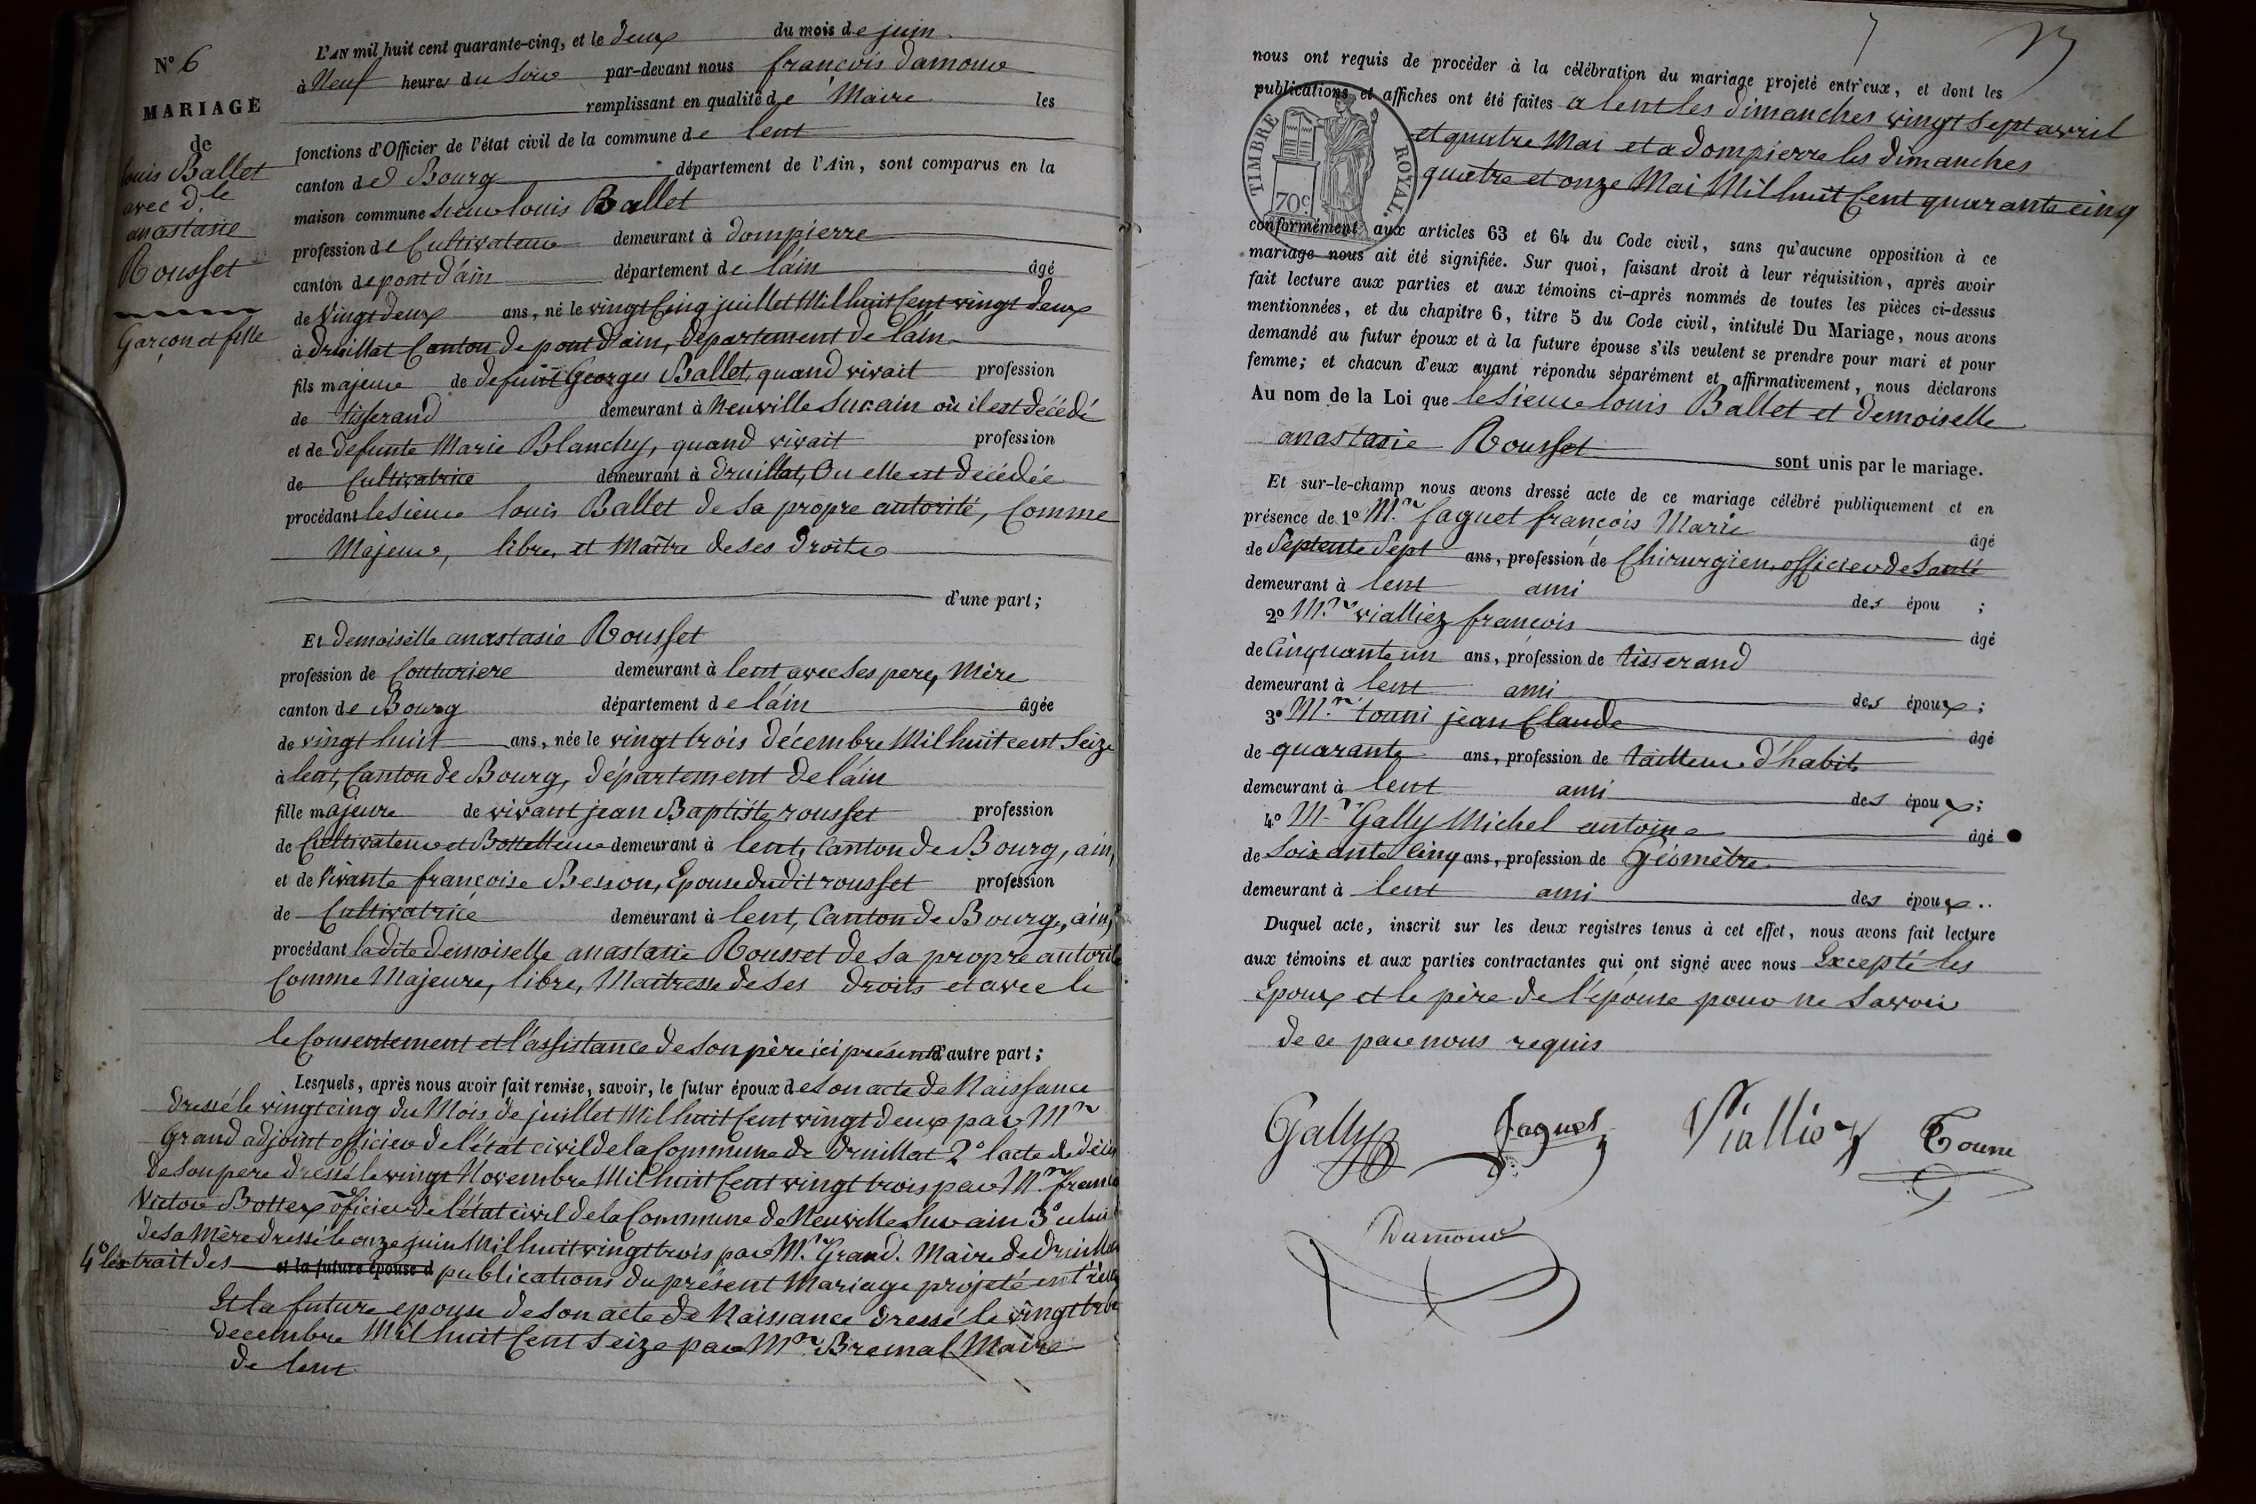 N° 6
MARIAGE
de
louis Ballet
avec d.le
anastasie
Rousset
Garçon et fille
L'AN mil huit cent quarante-cinq, et le deux du mois de juin
à Neuf heures du soir par-devant nous françois damour
remplissant en qualité de Maire les
fonctions d'Officier de l'état civil de la commune de lent
canton de Bourg département de l'Ain, sont comparus en la
maison commune sieur louis Ballet
profession de Cultivateur demeurant à dompierre
canton de pont d'ain département de l'ain âgé
de Vingt deux ans, né le vingt Cinq juillet Mil huit Cent vingt deux
à druillat Canton de pont d'ain, département de l'ain
fils majeur de defunt Georges Ballet, quand vivait profession
de tisserand demeurant à Neuville sur ain où il est décédé
et de defunte Marie Blanchy, quand vivait profession
de Cultivatrice demeurant à druillat, Ou elle est décédée
procédant le sieur louis Ballet de sa propre autorité, Comme
Majeur, libre, et Maître de ses droits
d'une part;
Et demoiselle anastasie Rousset
profession de Couturiere demeurant à lent avec ses pere, Mère
canton de Bourg département de l'ain âgée
de vingt huit ans, née le vingt trois décembre Mil huit cent Seize
à lent, Canton de Bourg, département de l'ain
fille majeure de vivant jean Baptiste rousset profession
de Cultivateur et Bottelleur demeurant à lent, Canton de Bourg, ain,
et de Vivante françoise Besson, Epouse dudit rousset profession
de Cultivatrice demeurant à lent, Canton de Bourg, ain,
procédant ladite demoiselle anastasie Rousset de sa propre autorité
Comme Majeure, libre, Maitresse de ses droits et avec le
le Consentement et l'assistance de son père ici présent d'autre part;
Lesquels, après nous avoir fait remise, savoir, le futur époux de son acte de Naissance
dressé le vingt cinq du Mois de juillet Mil huit Cent vingt deux par Mr
Grand adjoint officier de l'état civil de la Commune de Druillat 2° l'acte de décès
de son pere dressé le vingt Novembre Mil huit Cent vingt trois par Mr. franç
Victor Bottex officier de l'état civil de la Commune de Neuville sur ain 3° celui
de sa Mère dressé le onze juin Mil huit vingt trois par Mr. Grand. Maire de Druillat
4° l'extrait des et la future épouse d publications du présent Mariage projeté entr'eux
Et la future epouse de son acte de Naissance dressé le vingt trois
decembre Mil huit Cent Seize par Mr. Bremal Maire
de lent
nous ont requis de procéder à la célébration du mariage projeté entr'eux, et dont les
publications et affiches ont été faites a lent les dimanches vingt Sept avril
et quatre Mai et a dompierre les dimanches
quatre et onze Mai Mil huit Cent quarante cinq
TIMBRE ROYAL.
70c
conformément aux articles 63 et 64 du Code civil, sans qu'aucune opposition à ce
mariage nous ait été signifiée. Sur quoi, faisant droit à leur réquisition, après avoir
fait lecture aux parties et aux témoins ci-après nommés de toutes les pièces ci-dessus
mentionnées, et du chapitre 6, titre 5 du Code civil, intitulé Du Mariage, nous avons
demandé au futur époux et à la future épouse s'ils veulent se prendre pour mari et pour
femme; et chacun d'eux ayant répondu séparément et affirmativement, nous déclarons
Au nom de la Loi que le sieur louis Ballet et demoiselle
anastasie Rousset sont unis par le mariage.
Et sur-le-champ nous avons dressé acte de ce mariage célébré publiquement et en
présence de 1° M.r faguet françois Marie âgé
de Septente Sept ans, profession de Chirurgien, officier de Santé
demeurant à lent ami des épou ;
2° M.r vialliez françois âgé
de Cinquante un ans, profession de tisserand
demeurant à lent ami des époux;
3° M.r touni jean Claude âgé
de quarante ans, profession de tailleur d'habits
demeurant à lent ami des époux;
4° M.r Gally Michel antoine âgé
de Soixante Cinq ans, profession de Géomètre
demeurant à lent ami des époux..
Duquel acte, inscrit sur les deux registres tenus à cet effet, nous avons fait lecture
aux témoins et aux parties contractantes qui ont signé avec nous Excepté les
Epoux et le père de l'épouse pour ne Savoir
de ce par nous requis
Gally Faguet Vialliez Toune
Damour